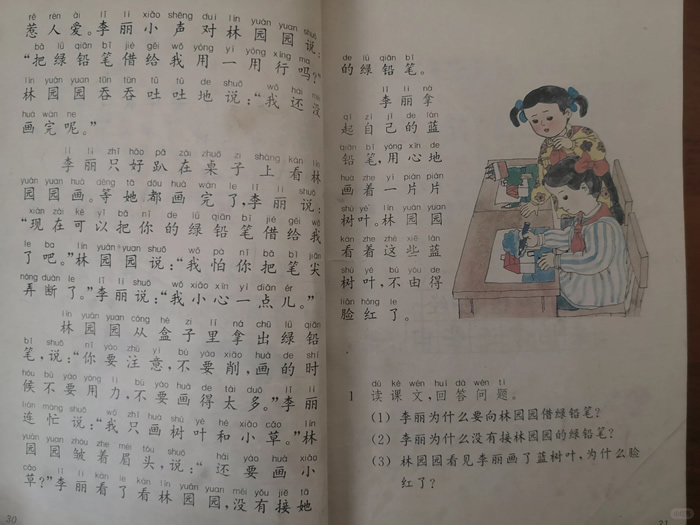 rě rén ài lǐ lì xiǎo shēng duì lín yuán yuan shuō
惹人爱。李丽小声对林园园说：
bǎ lǜ qiān bǐ jiè gěi wǒ yòng yi yòng xíng ma
“把绿铅笔借给我用一用行吗？”
lín yuán yuan tūn tūn tǔ tǔ de shuō wǒ hái méi
林园园吞吞吐吐地说：“我还没
huà wán ne
画完呢。”
lǐ lì zhǐ hǎo pā zài zhuō zi shàng kàn lín
李丽只好趴在桌子上看林
yuán yuan huà děng tā dōu huà wán le lǐ lì shuō
园园画。等她都画完了，李丽说：
xiàn zài kě yǐ bǎ nǐ de lǜ qiān bǐ jiè gěi wǒ
“现在可以把你的绿铅笔借给我
le ba lín yuán yuan shuō wǒ pà nǐ bǎ bǐ jiān
了吧。”林园园说：“我怕你把笔尖
nòng duàn le lǐ lì shuō wǒ xiǎo xīn yì diǎn ér
弄断了。”李丽说：“我小心一点儿。”
lín yuán yuan cóng hé zi lǐ ná chū lǜ qiān
林园园从盒子里拿出绿铅
bǐ shuō nǐ yào zhù yì bú yào xiāo huà de shí
笔，说：“你要注意，不要削，画的时
hou bú yào yòng lì bú yào huà de tài duō lǐ lì
候不要用力，不要画得太多。”李丽
lián máng shuō wǒ zhǐ huà shù yè hé xiǎo cǎo lín
连忙说：“我只画树叶和小草。”林
yuán yuan zhòu zhe méi tóu shuō hái yào huà xiǎo
园园皱着眉头，说：“还要画小
cǎo lǐ lì kàn le kàn lín yuán yuan méi yǒu jiē tā
草？”李丽看了看林园园，没有接她
30
de lǜ qiān bǐ
的绿铅笔。
lǐ lì ná
李丽拿
qǐ zì jǐ de lán
起自己的蓝
qiān bǐ yòng xīn de
铅笔，用心地
huà zhe yí piàn piàn
画着一片片
shù yè lín yuán yuan
树叶。林园园
kàn zhe zhè xiē lán
看着这些蓝
shù yè bù yóu de
树叶，不由得
liǎn hóng le
脸红了。
dú kè wén huí dá wèn tí
1 读课文，回答问题。
(1) 李丽为什么要向林园园借绿铅笔？
(2) 李丽为什么没有接林园园的绿铅笔？
(3) 林园园看见李丽画了蓝树叶，为什么脸
红了？